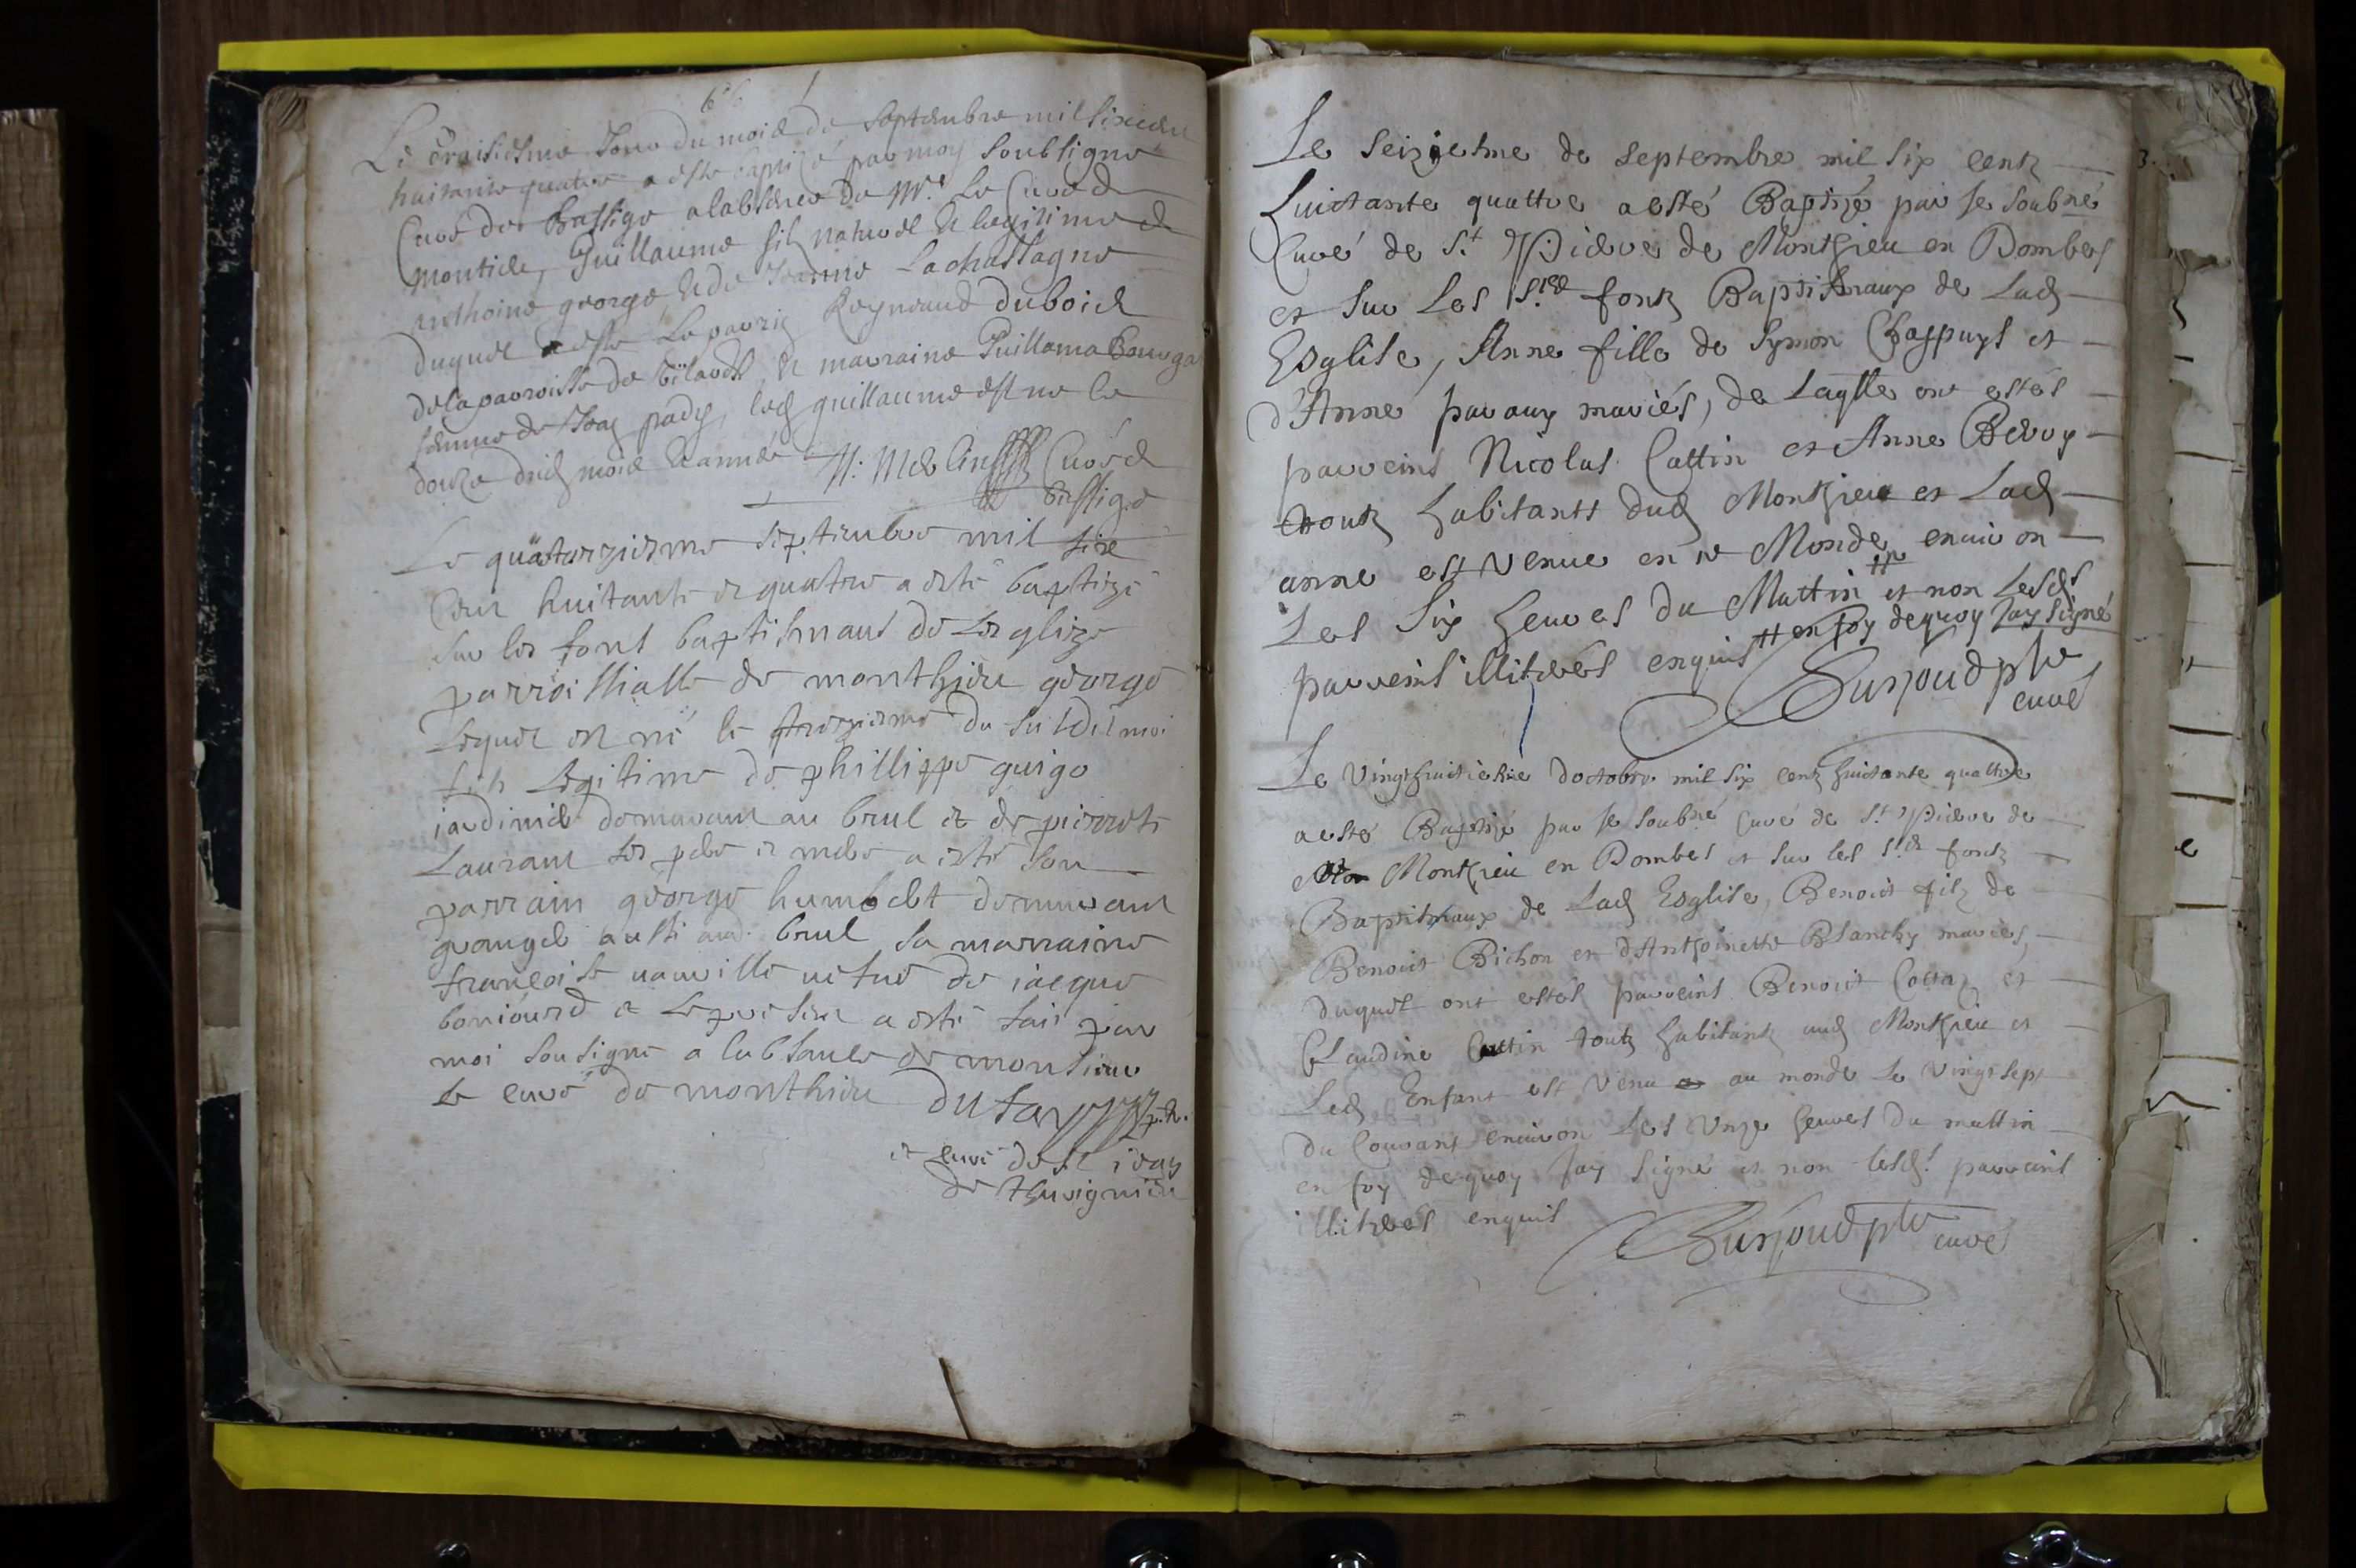 Le traisiesme Jour du mois de Septembre mil six cent
huitante quatre a este baptizé par moy soubsigne
Curé de Bassige a labsence de Mre. Le Curé de
montieu, Guillaume fils naturel & legitime de
Anthoine george & de Jeanne Lachassagne
duquel a este Le parrin Reymond dubois
de la parroisse de & marraine Guillama
femme de Jean led guillaume est ne le
douze dud mois & année Curé de
Le quatorziesme septembre mil six
Cent huitante et quatre a esté baptizé
Sur les font baptismaus de Lesglize
parroissialle de monthieu george
Lequel est né le trezziesme du susdit moi
fils Legitime de phillippe guigo
jardinier demurant au brul et de pierrete
Laurant ses pere et mere a esté son
parrain george humbert demurant
granger aussi au brul sa marraine
francoise vefue de iacque
boniourd et Le presant a esté fait par
moi sousigne a labsance de monsieur
le curé de monthieu dufay
et curé de st iean
de thurigneu
Le seiziesme de septembre mil six centz
huictante quattre a esté Baptizé par je soubné
Curé de St. Pierre de Monthieu en Dombes
et sur Les Stes fontz Baptismaux de Lad
Esglise, Anne fille de Symon Chappuys et
d'Anne mariés, de Laqlle ont estés
parreins Nicolas Cattin et Anne
toutz habitants dud Monthieu et Lad
anne est venue en ce Monde environ
Les Six heures du Mattin # et non Lesds
parreins illitérés enquis # en foy dequoy Jay signé
Burjoud ptre
curé
Le vingthuitiesme doctobre mil six centz huictante quattre
a esté Baptizé par je soubné curé de St. Pierre de
Monthieu en Dombes et sur les Stes fontz
Baptismaux de Lad Esglise, Benoist filz de
Benoist Bichon et d'Anthoinette Blanchy mariés
duquel ont estés parreins Benoist Cottaz et
Claudine Cattin toutz habitantz aud Monthieu et
Led Enfant est venu au monde Le vingt sept
du Courant environ Les unze heures du mattin
en foy dequoy Jay signé et non lesds parreins
illitérés enquis Burjoud ptre curé